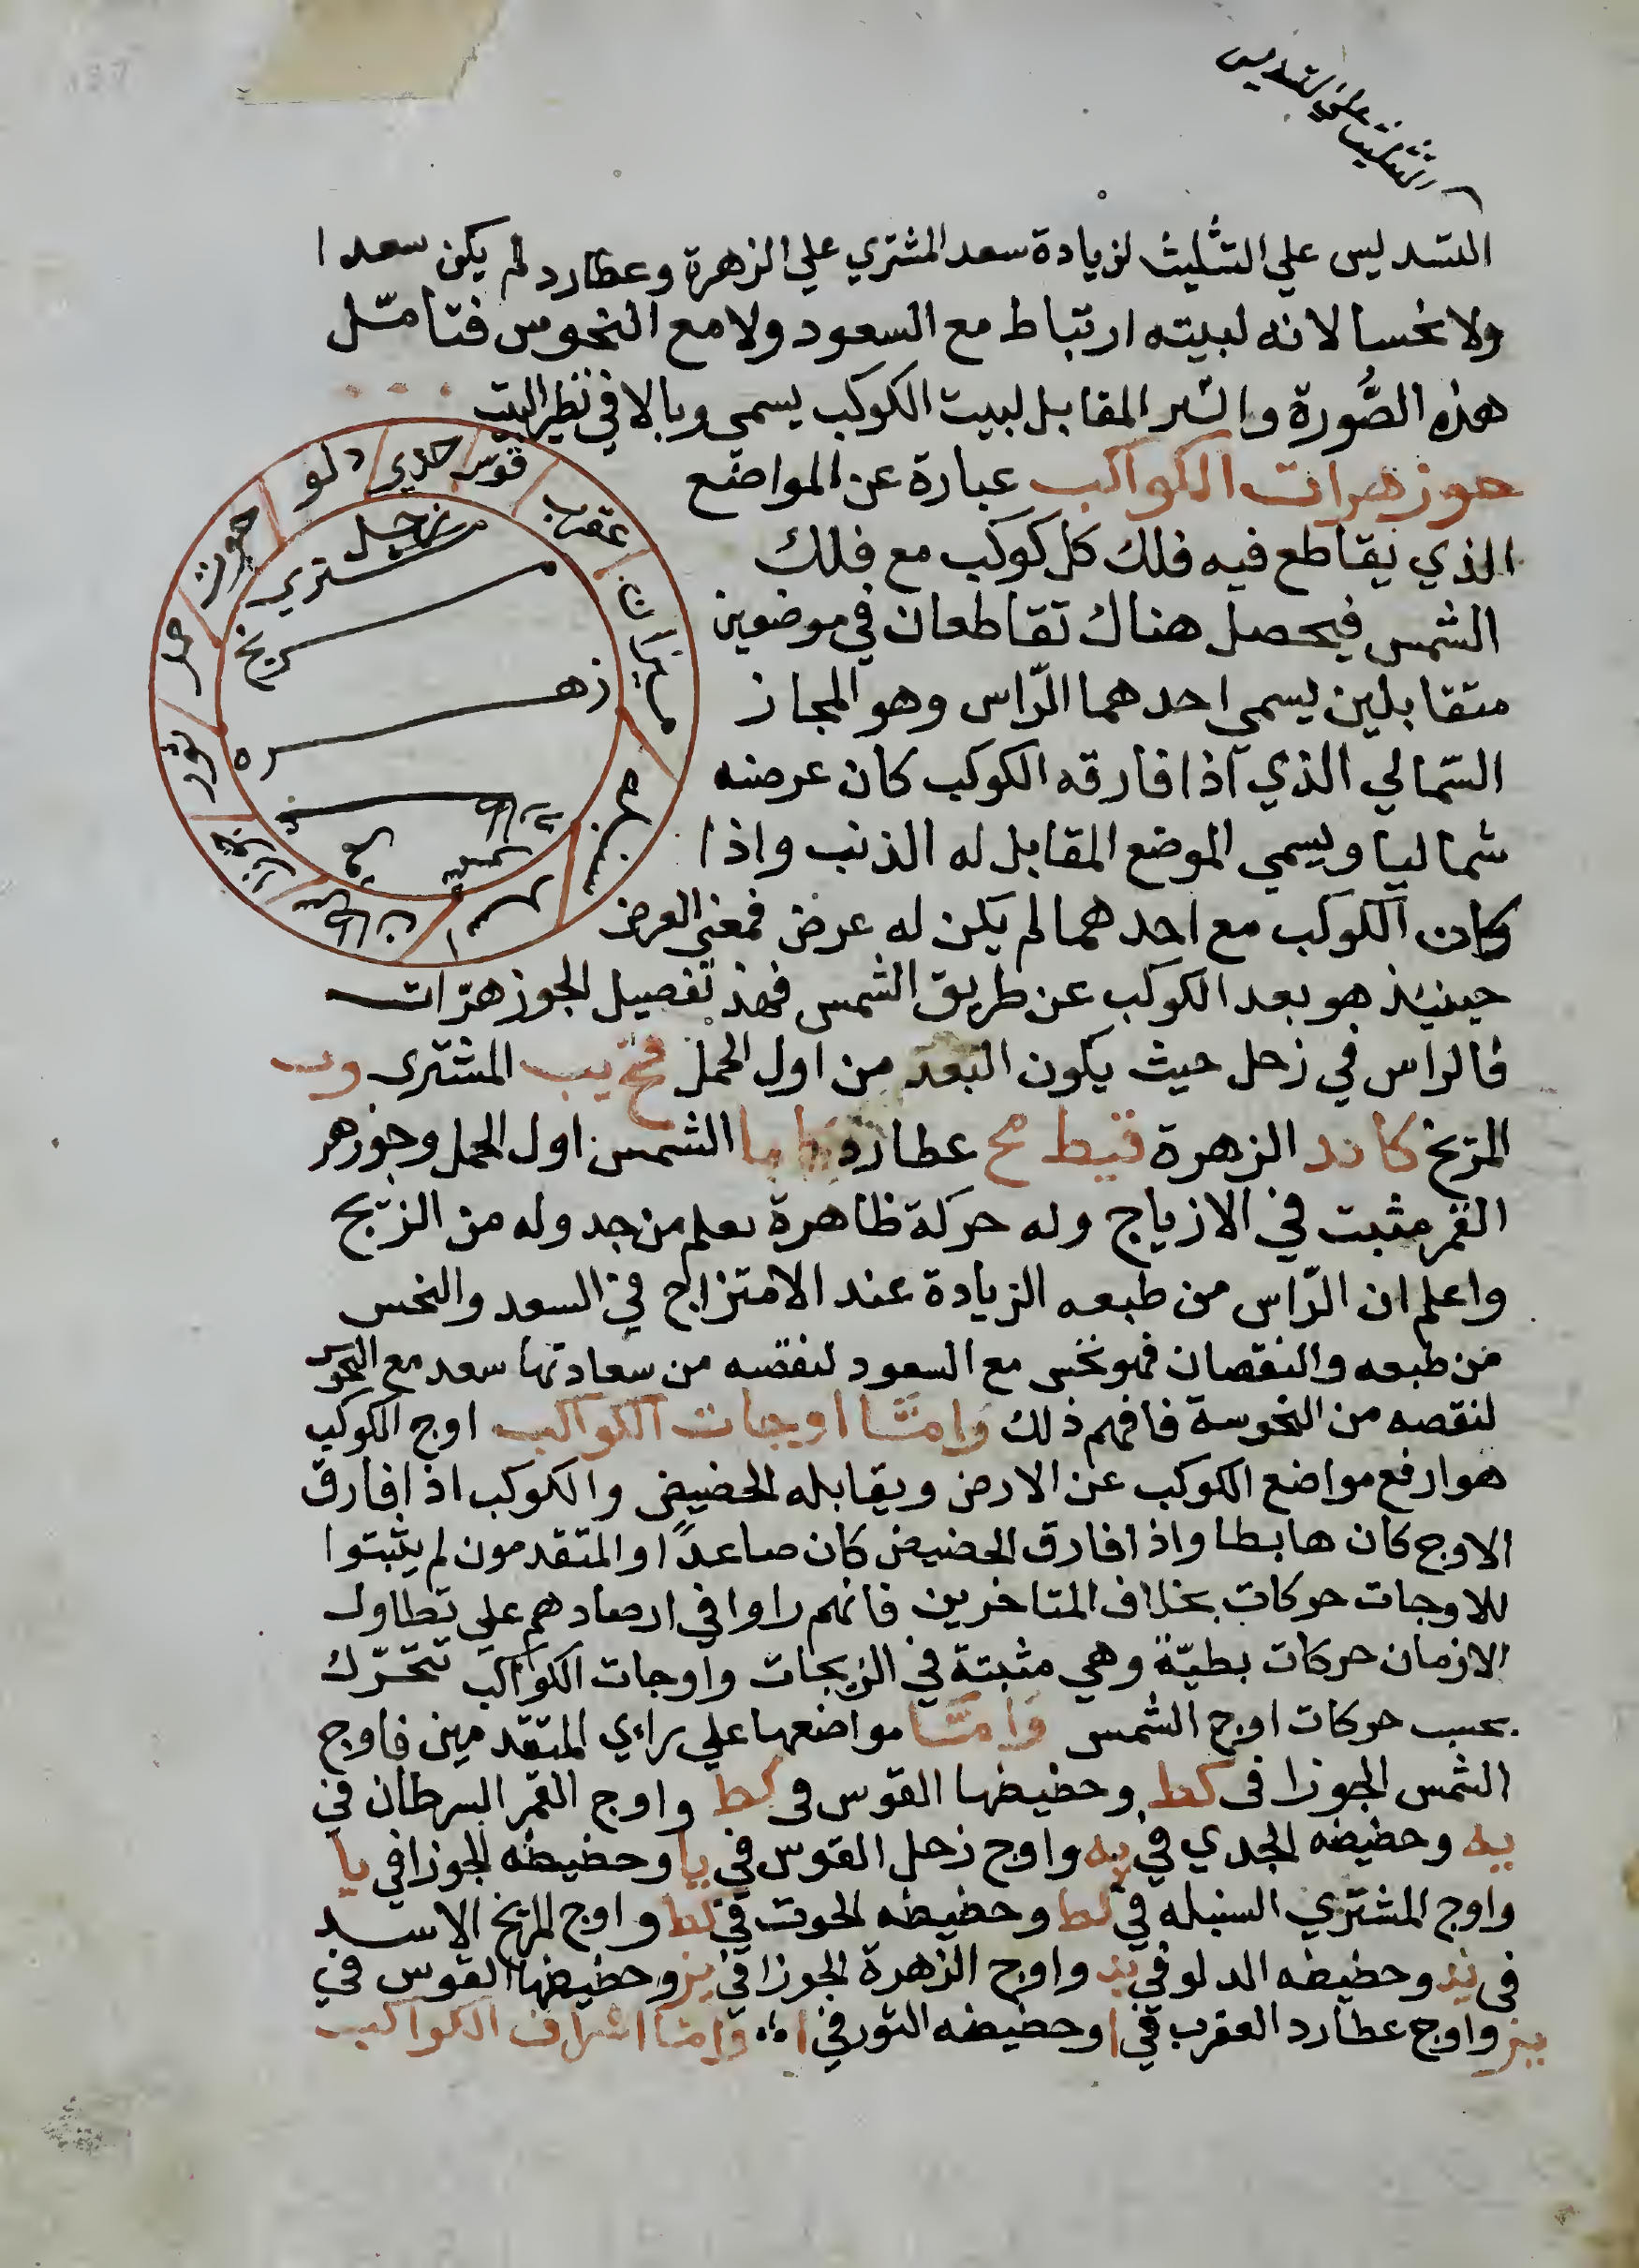 التثليث علي التسديس
التسديس علي التثليث لزيادة سعد المشتري علي الزهرة وعطارد لم يكن سعدا
ولا نحسا لانه لبيته ارتباط مع السعود ولا مع النحوس فتامّل
هذه الصُّورة والشر المقابل لبيت الكوكب يسمي وبالا في نظير البيت
جوزهرات الكواكب عبارة عن المواضع
الذي يقاطع فيه فلك كل كوكب مع فلك
الشمس فيحصل هناك تقاطعان في موضوين
متقابلين يسمي احدهما الرّاس وهو المجاز
الشمالي الذي اذا فارقه الكوكب كان عرضه
شماليا ويسمي الموضع المقابل له الذنب واذا
كان الكوكب مع احدهما لم يكن له عرض فمعني العرض
حينيئذ هو بعد الكوكب عن طريق الشمس فهذ تفصيل الجوزهرّات
فالراس في زحل حيث يكون البعد من اول الحمل قح يب المشتري
المريخ كا ند الزهرة قيط مح عطارد الشمس اول الحمل وجوزهر
القمر مثبت في الازياج وله حركة ظاهرة يعلم من جدوله من الزيج
واعلم ان الرّاس من طبعه الزيادة عند الامتزاج في السعد والنحس
من طبعه والنقصان فهو نحس مع السعود لنقصه من سعادتها سعد مع النحوس
لنقصه من النحوسة فافهم ذلك وامّا اوجات الكواكب اوج الكوكب
هو ارفع مواضع الكوكب عن الارض ويقابله الحضيض والكوكب اذا فارق
الاوج كان هابطا واذا فارق الحضيض كان صاعدًا والمتقدمون لم يثبتوا
للاوجات حركات بخلاف المتاخرين فانهم راوا في ارصادهم علي تطاول
الازمان حركات بطيّة وهي مثبتة في الزيجات واوجات الكواكب تتحرّك
بحسب حركات اوج الشمس وامّا مواضعها علي راءي المتقدمين فاوج
الشمس الجوزا فى كط وحضيضها القوس فى كط واوج القمر السرطان في
يه وحضيضه الجدي في يه واوج زحل القوس في يا وحضيضه الجوزا في يا
واوج المشتري السنبله في كط وحضيضه الحوت في كط واوج المريخ الاسد
فى يد وحضيضه الدلو في يد واوج الزهرة الجوزا في يز وحضيضها القوس في
يز واوج عطارد العقرب في ا وحضيضه الثور في ا وامّا اشراف الكواكب
قوس
جدي
دلو
حوت
حمل
ثور
جوزا
سرطان
اسد
سنبله
ميزان
عقرب
زحل
مشتري
مريخ
زهره
عطارد
شمس
قمر